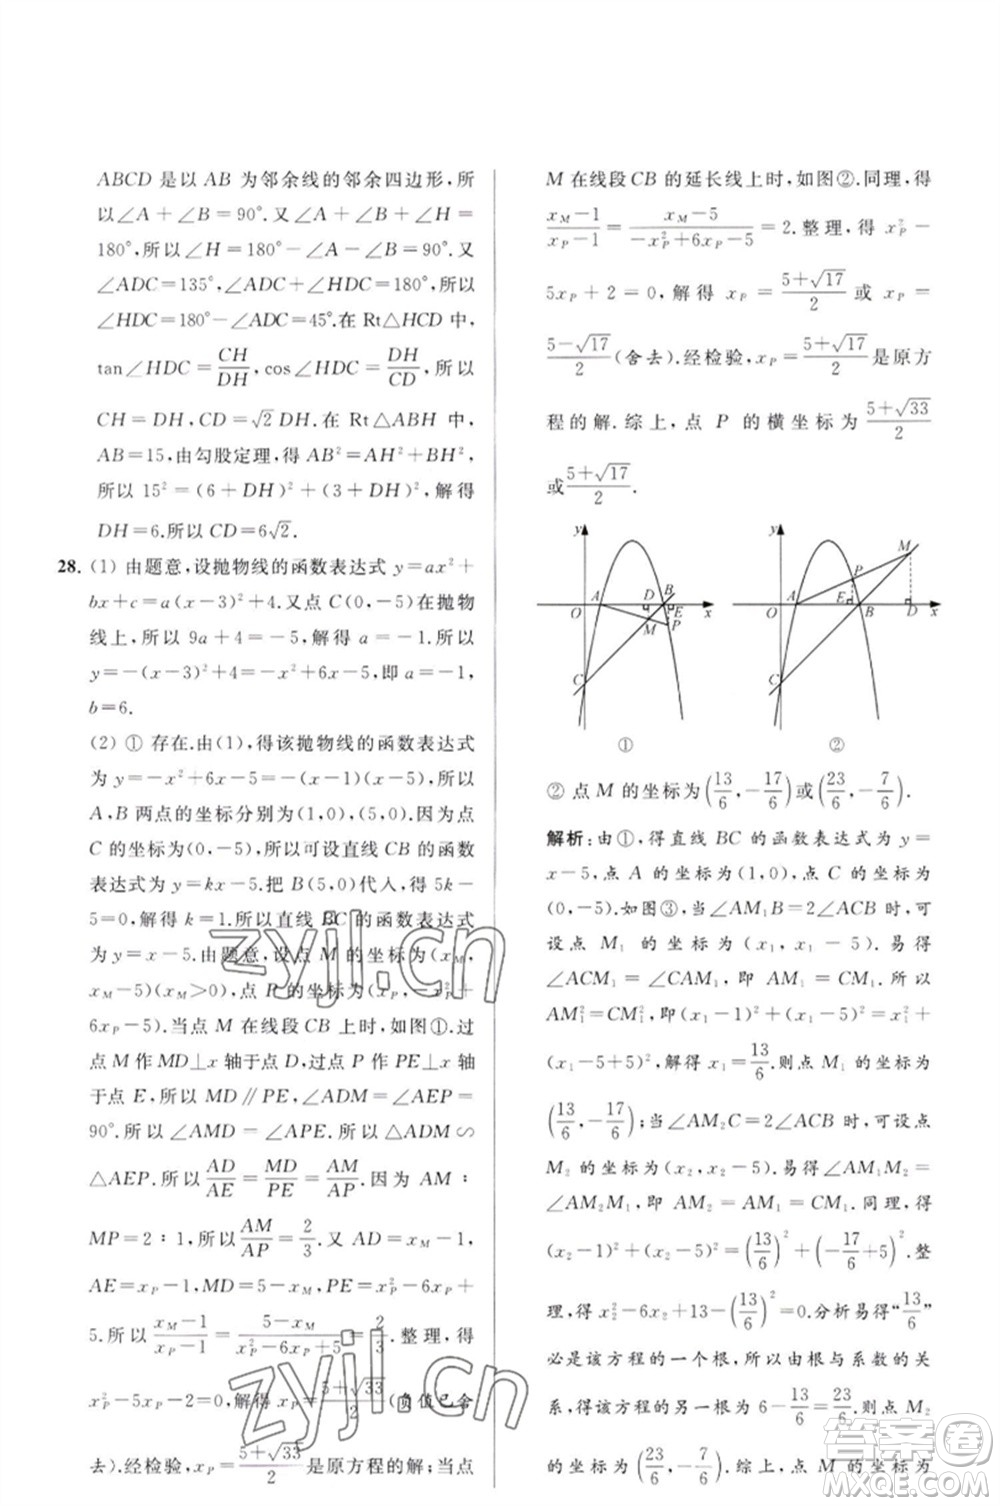 ABCD是以 AB 为邻余线的邻余四边形,所
以∠A+∠B=90°.又∠A+∠B+∠H=
180°,所以∠H=180°-∠A-∠B=90°.因为
∠ADC=135°,∠ADC+∠HDC=180°,所以
∠HDC=180°-∠ADC=45°.在 Rt△HCD 中,
tan∠HDC=CH/DH,cos∠HDC=DH/CD,所以
CH=DH,CD=√2 DH.在 Rt△ABH 中,
AB=15,由勾股定理,得 AB²=AH²+BH²,
所以 15²=(6+DH)²+(3+DH)²,解得
DH=6.所以 CD=6√2.
28. (1) 由题意,设抛物线的函数表达式 y=ax²+
bx+c=a(x-3)²+4.又点 C(0,-5)在抛物
线上,所以 9a+4=-5,解得 a=-1.所以
y=-(x-3)²+4=-x²+6x-5,即 a=-1,
b=6.
(2) ① 存在.由(1),得该抛物线的函数表达式
为 y=-x²+6x-5=-(x-1)(x-5),所以
A,B 两点的坐标分别为(1,0),(5,0).因为点
C 的坐标为(0,-5),所以可设直线 CB 的函数
表达式为 y=kx-5.把 B(5,0)代入,得 5k-
5=0,解得 k=1.所以直线 BC 的函数表达式
为 y=x-5.由题意,设点 M 的坐标为(x_M,
x_M-5)(x_M>0),点 P 的坐标为(x_P,-x_P²+
6x_P-5).当点 M 在线段 CB 上时,如图①.过
点 M 作 MD⊥x 轴于点 D,过点 P 作 PE⊥x 轴
于点 E,所以 MD∥PE,∠ADM=∠AEP=
90°.所以∠AMD=∠APE.所以△ADM∽
△AEP.所以 AD/AE=MD/PE=AM/AP.因为 AM∶
MP=2∶1,所以 AM/AP=2/3.又 AD=x_M-1,
AE=x_P-1,MD=5-x_M,PE=x_P²-6x_P+
5.所以 (x_M-1)/(x_P-1)=(5-x_M)/(x_P²-6x_P+5)=2/3.整理,得
x_P²-x_P-2=0,解得 x_P=(5+√33)/2(负值已舍
去).经检验,x_P=(5+√33)/2是原方程的解;当点
M 在线段 CB 的延长线上时,如图②.同理,得
(x_M-1)/(x_P-1)=(x_M-5)/(-x_P²+6x_P-5)=2.整理,得 x_P²-
5x_P+2=0,解得 x_P=(5+√17)/2 或 x_P=
(5-√17)/2(舍去).经检验,x_P=(5+√17)/2是原方
程的解.综上,点 P 的横坐标为(5+√33)/2
或(5+√17)/2.
y A B D E O x M P C ①
y M P A E B D O x C ②
② 点 M 的坐标为(13/6,-17/6)或(23/6,-7/6).
解析:由①,得直线 BC 的函数表达式为 y=
x-5,点 A 的坐标为(1,0),点 C 的坐标为
(0,-5).如图③,当∠AM₁B=2∠ACB 时,可
设点 M₁ 的坐标为(x₁,x₁-5).易得
∠ACM₁=∠CAM₁,即 AM₁=CM₁.所以
AM₁²=CM₁²,即(x₁-1)²+(x₁-5)²=x₁²+
(x₁-5+5)²,解得 x₁=13/6.则点 M₁ 的坐标为
(13/6,-17/6);当∠AM₂C=2∠ACB 时,可设点
M₂ 的坐标为(x₂,x₂-5).易得∠AM₁M₂=
∠AM₂M₁,即 AM₂=AM₁=CM₁.同理,得
(x₂-1)²+(x₂-5)²=(13/6)²+(-17/6+5)².整
理,得 x₂²-6x₂+13-(13/6)²=0.分析易得“13/6”
必是该方程的一个根,所以由根与系数的关
系,得该方程的另一根为 6-13/6=23/6.则点 M₂
的坐标为(23/6,-7/6).综上,点 M 的坐标为
zyjl.cn
zyjl.cn
答案圈
MXQE.COM